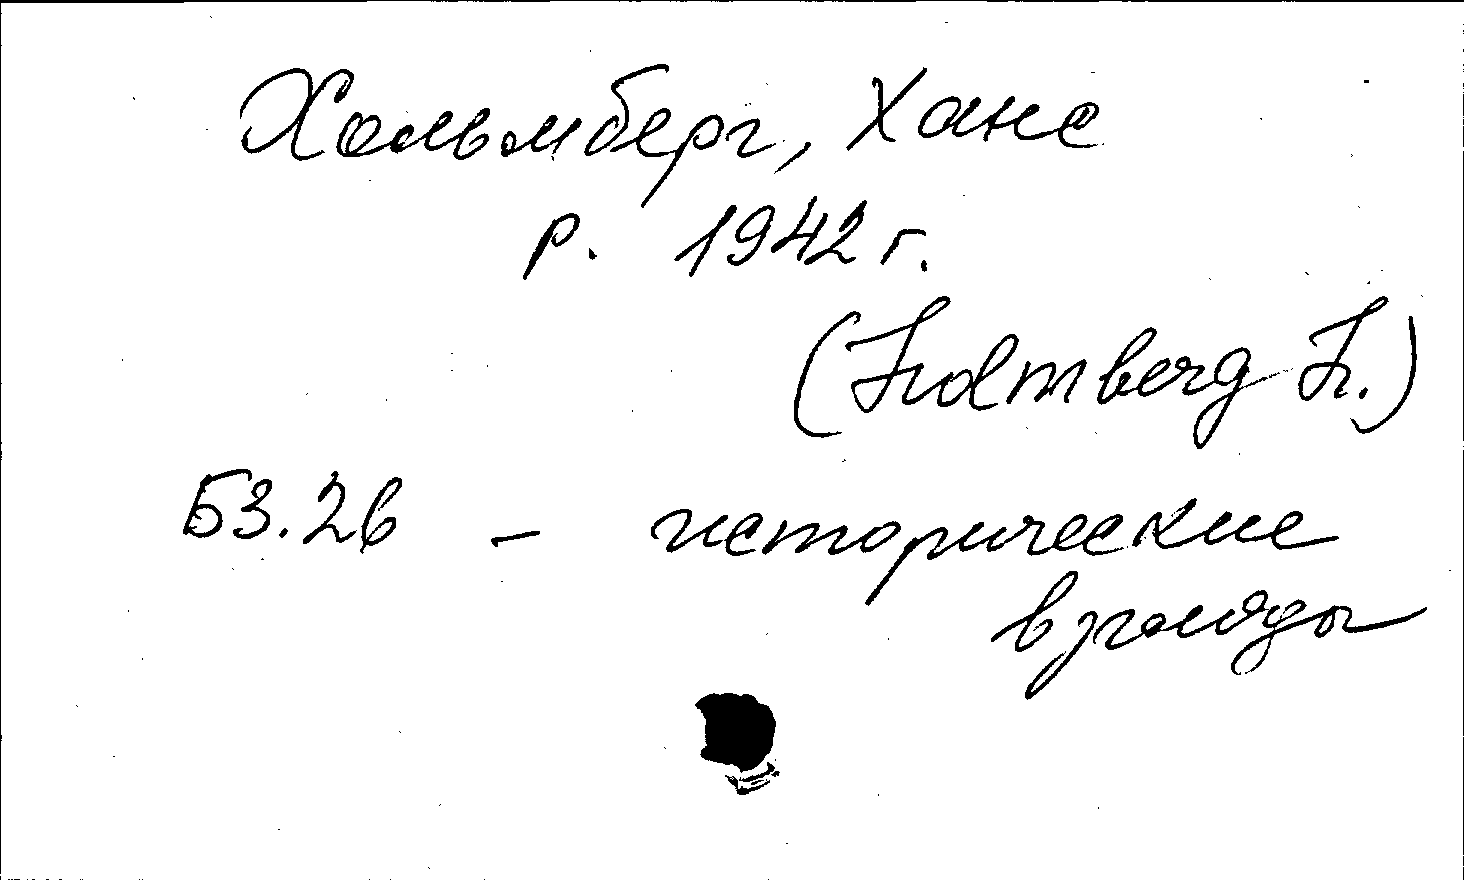 Хольмберг, Ханс
р. 1942 г.
(Holmberg H.)
Б3.26 - исторические
взгляды